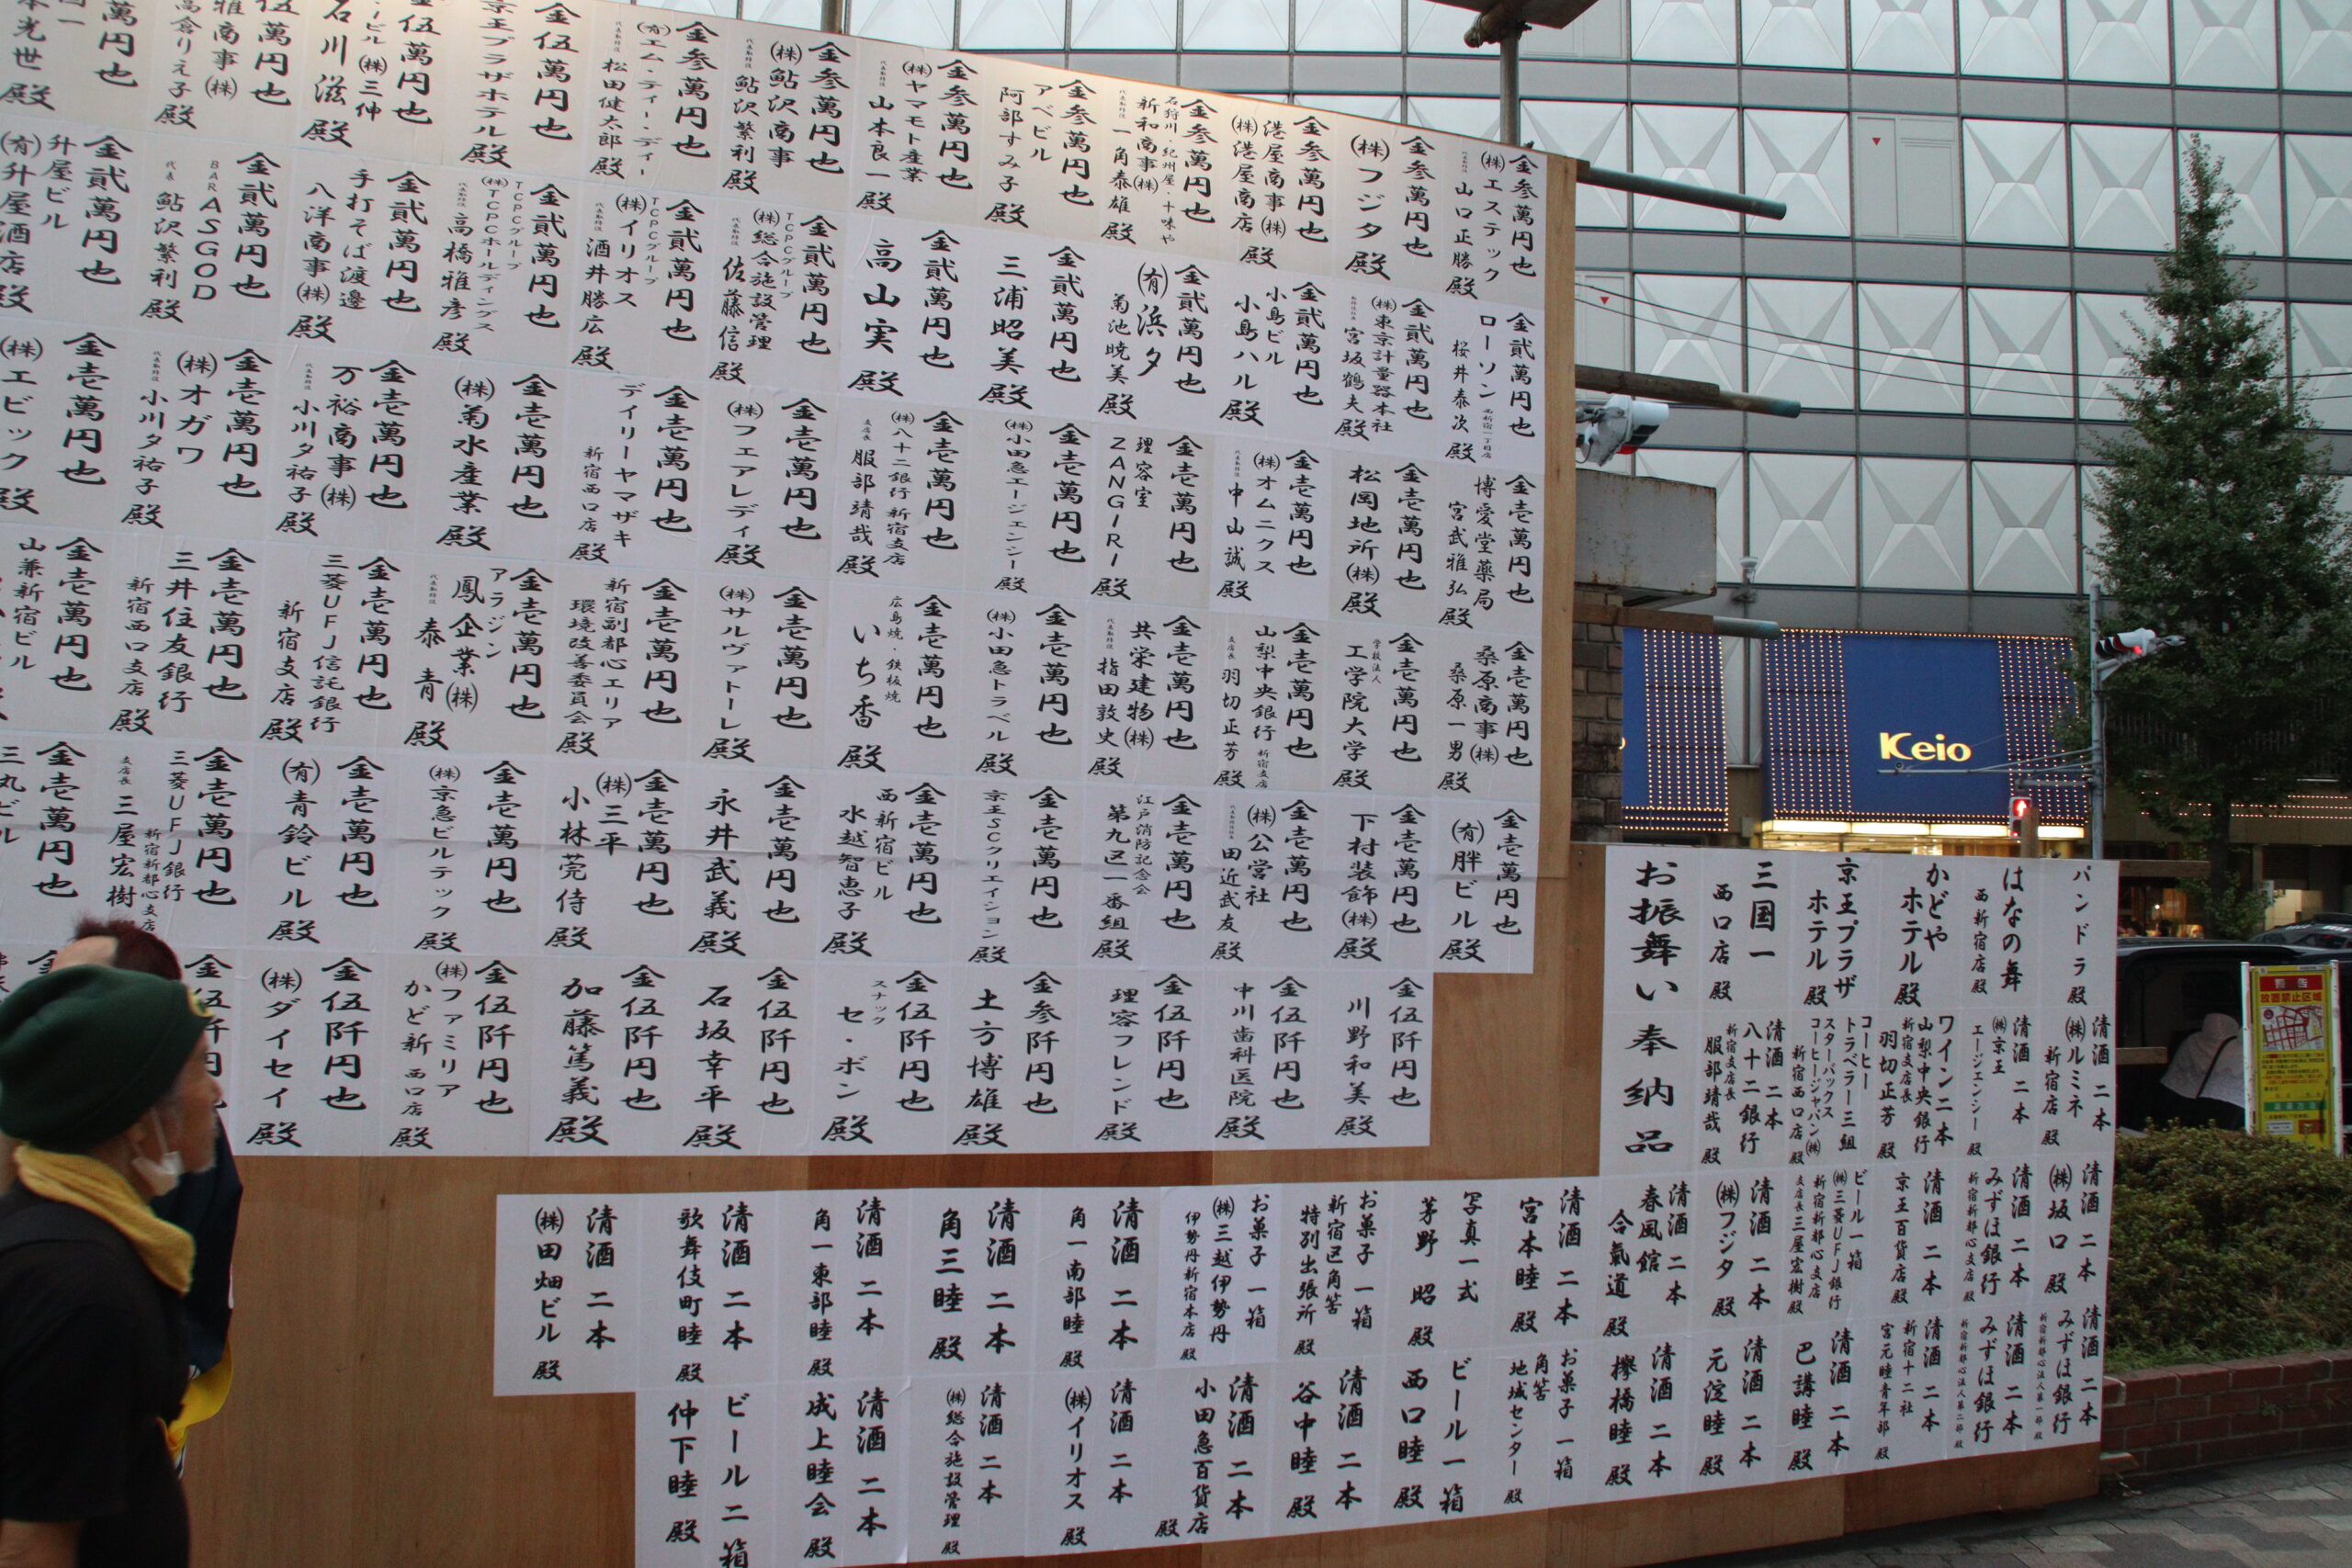 金参萬円也
㈱エステック
代表取締役
山口正勝 殿
金参萬円也
㈱フジタ 殿
金参萬円也
港屋商事㈱
㈱港屋商店 殿
金参萬円也
石狩川・紀州屋・十味や
新和商事㈱
代表取締役
一角泰雄 殿
金参萬円也
アベビル
阿部すみ子 殿
金参萬円也
㈱ヤマモト産業
代表取締役
山本良一 殿
金参萬円也
㈱鮎沢商事
代表取締役
鮎沢繁利 殿
金参萬円也
㈲エム・ティー・ディー
代表取締役
松田健太郎 殿
金伍萬円也
京王プラザホテル 殿
金伍萬円也
ビル㈱三伸
石川滋 殿
伍萬円也
雅商事㈱
高倉りえ子 殿
萬円也
光世 殿
金貮萬円也
ローソン 西新宿一丁目店
桜井泰次 殿
金貮萬円也
㈱東京計量器本社
取締役社長
宮坂鶴夫 殿
金貮萬円也
小島ビル
小島ハル 殿
金貮萬円也
㈲浜夕
菊池暁美 殿
金貮萬円也
三浦昭美 殿
金貮萬円也
高山実 殿
金貮萬円也
TCPCグループ
㈱総合施設管理
代表取締役
佐藤信 殿
金貮萬円也
TCPCグループ
㈱イリオス
代表取締役
酒井勝広 殿
金貮萬円也
TCPCグループ
㈱TCPCホールディングス
代表取締役
高橋雅彦 殿
金貮萬円也
手打そば渡邊
八洋商事㈱ 殿
金貮萬円也
BARASGOD
代表
鮎沢繁利 殿
金貮萬円也
升屋ビル
㈲升屋酒店 殿
金壱萬円也
博愛堂薬局
宮武雅弘 殿
金壱萬円也
松岡地所㈱ 殿
金壱萬円也
㈱オムニクス
代表取締役
中山誠 殿
金壱萬円也
理容室
ZANGIRI 殿
金壱萬円也
㈱小田急エージェンシー 殿
金壱萬円也
㈱八十二銀行 新宿支店
支店長
服部靖哉 殿
金壱萬円也
㈱フェアレディ 殿
金壱萬円也
デイリーヤマザキ
新宿西口店 殿
金壱萬円也
㈱菊水産業 殿
金壱萬円也
万裕商事㈱
代表取締役
小川夕祐子 殿
金壱萬円也
㈱オガワ
代表取締役
小川夕祐子 殿
金壱萬円也
㈱エビック 殿
金壱萬円也
桑原商事㈱
桑原一男 殿
金壱萬円也
学校法人
工学院大学 殿
金壱萬円也
山梨中央銀行 新宿支店
支店長
羽切正芳 殿
金壱萬円也
共栄建物㈱
代表取締役
指田敦史 殿
金壱萬円也
㈱小田急トラベル 殿
金壱萬円也
広島焼・鉄板焼
いち香 殿
金壱萬円也
㈱サルヴァトーレ 殿
金壱萬円也
新宿副都心エリア
環境改善委員会 殿
金壱萬円也
アラジン
鳳企業㈱
代表取締役
泰青 殿
金壱萬円也
三菱UFJ信託銀行
新宿支店 殿
金壱萬円也
三井住友銀行
新宿西口支店 殿
金壱萬円也
山兼新宿ビル
金壱萬円也
㈲胖ビル 殿
金壱萬円也
下村装飾㈱ 殿
金壱萬円也
㈱公営社
田近武友 殿
金壱萬円也
江戸消防記念会
第九区一番組 殿
金壱萬円也
京王SCクリエイション 殿
金壱萬円也
西新宿ビル
水越智恵子 殿
金壱萬円也
永井武義 殿
金壱萬円也
㈱三平
小林莞侍 殿
金壱萬円也
㈱京急ビルテック 殿
金壱萬円也
㈲青鈴ビル 殿
金壱萬円也
三菱UFJ銀行
新宿新都心支店
支店長
三屋宏樹
金壱萬円也
三丸ビル
金伍阡円也
川野和美 殿
金伍阡円也
中川歯科医院 殿
金伍阡円也
理容フレンド 殿
金参阡円也
土方博雄 殿
金伍阡円也
スナック
セ・ボン 殿
金伍阡円也
石坂幸平 殿
金伍阡円也
加藤篤義 殿
金伍阡円也
㈱ファミリア
かど新 西口店 殿
金伍阡円也
㈱ダイセイ 殿
金伍阡円
Keio
お振舞い奉納品
パンドラ 殿
はなの舞
西新宿店 殿
かどや
ホテル 殿
京王プラザ
ホテル 殿
三国一
西口店 殿
清酒 二本
㈱ルミネ
新宿店 殿
清酒 二本
㈱京王
エージェンシー 殿
ワイン二本
山梨中央銀行
新宿支店長
羽切正芳 殿
コーヒー
トラベラー三組
スターバックス
コーヒージャパン㈱
新宿西口店 殿
清酒 二本
八十二銀行
新宿支店長
服部靖哉 殿
清酒 二本
㈱坂口 殿
清酒 二本
みずほ銀行
新宿新都心支店 殿
清酒 二本
京王百貨店 殿
ビール一箱
㈱三菱UFJ銀行
新宿新都心支店
支店長三屋宏樹 殿
清酒 二本
㈱フジタ 殿
清酒 二本
春風館
合氣道 殿
清酒 二本
宮本睦 殿
写真一式
茅野 昭 殿
お菓子 一箱
新宿区角筈
特別出張所 殿
お菓子 一箱
㈱三越伊勢丹
伊勢丹新宿本店 殿
清酒 二本
角一南部睦 殿
清酒 二本
角三睦 殿
清酒 二本
角一東部睦 殿
清酒 二本
歌舞伎町睦 殿
清酒 二本
㈱田畑ビル 殿
清酒 二本
みずほ銀行
新宿新都心法人第一部 殿
清酒 二本
みずほ銀行
新宿新都心法人第二部 殿
清酒 二本
新宿十二社
宮元睦青年部 殿
清酒 二本
巴講睦 殿
清酒 二本
元淀睦 殿
清酒 二本
欅橋睦 殿
お菓子 一箱
角筈
地域センター 殿
ビール一箱
西口睦 殿
清酒 二本
谷中睦 殿
清酒 二本
小田急百貨店 殿
清酒 二本
㈱イリオス 殿
清酒 二本
㈱総合施設管理 殿
清酒 二本
成上睦会 殿
ビール二箱
仲下睦 殿
放置禁止区域